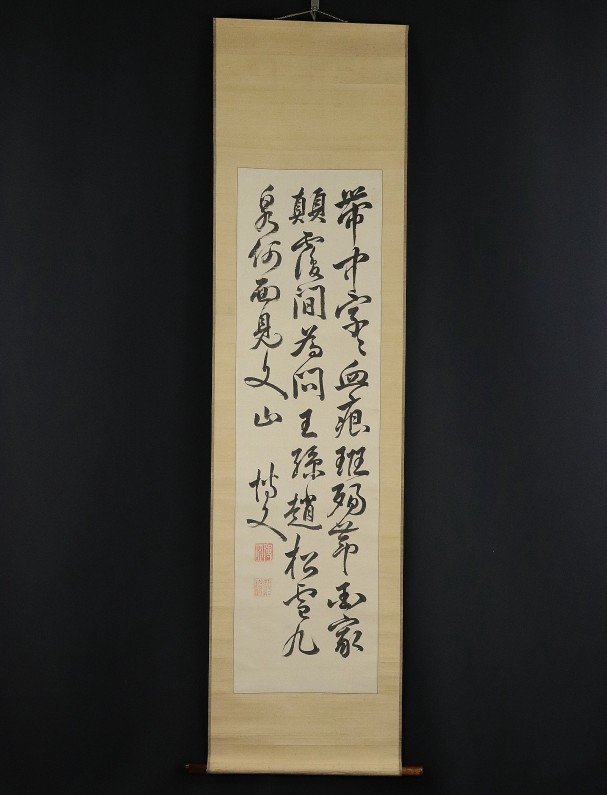 帶中字々血痕班殉節国家
顛覆間為問王孫趙松雪九
泉何面見文山
博文